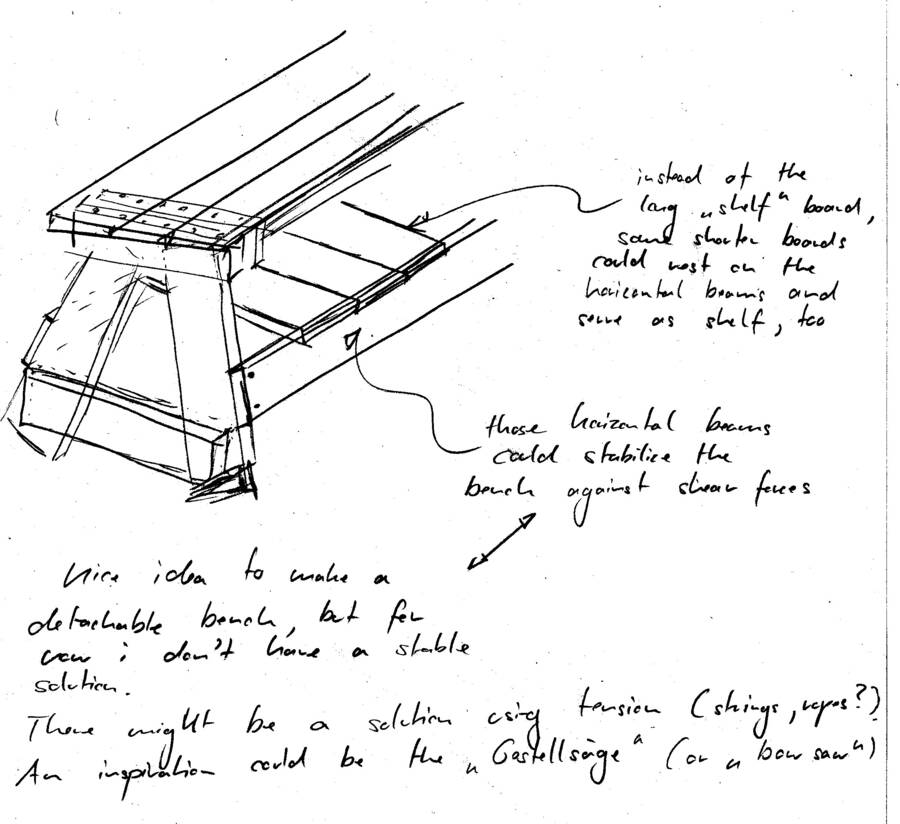 instead of the
long „shelf“ board,
some shorter boards
could rest on the
horizontal beams and
serve as shelf, too
those horizontal beams
could stabilize the
bench against shear forces
Nice idea to make a
detachable bench, but for
now i don't have a stable
solution.
There might be a solution using tension (strings, ropes?)
An inspiration could be the „Gestellsäge“ (or „bow saw“)